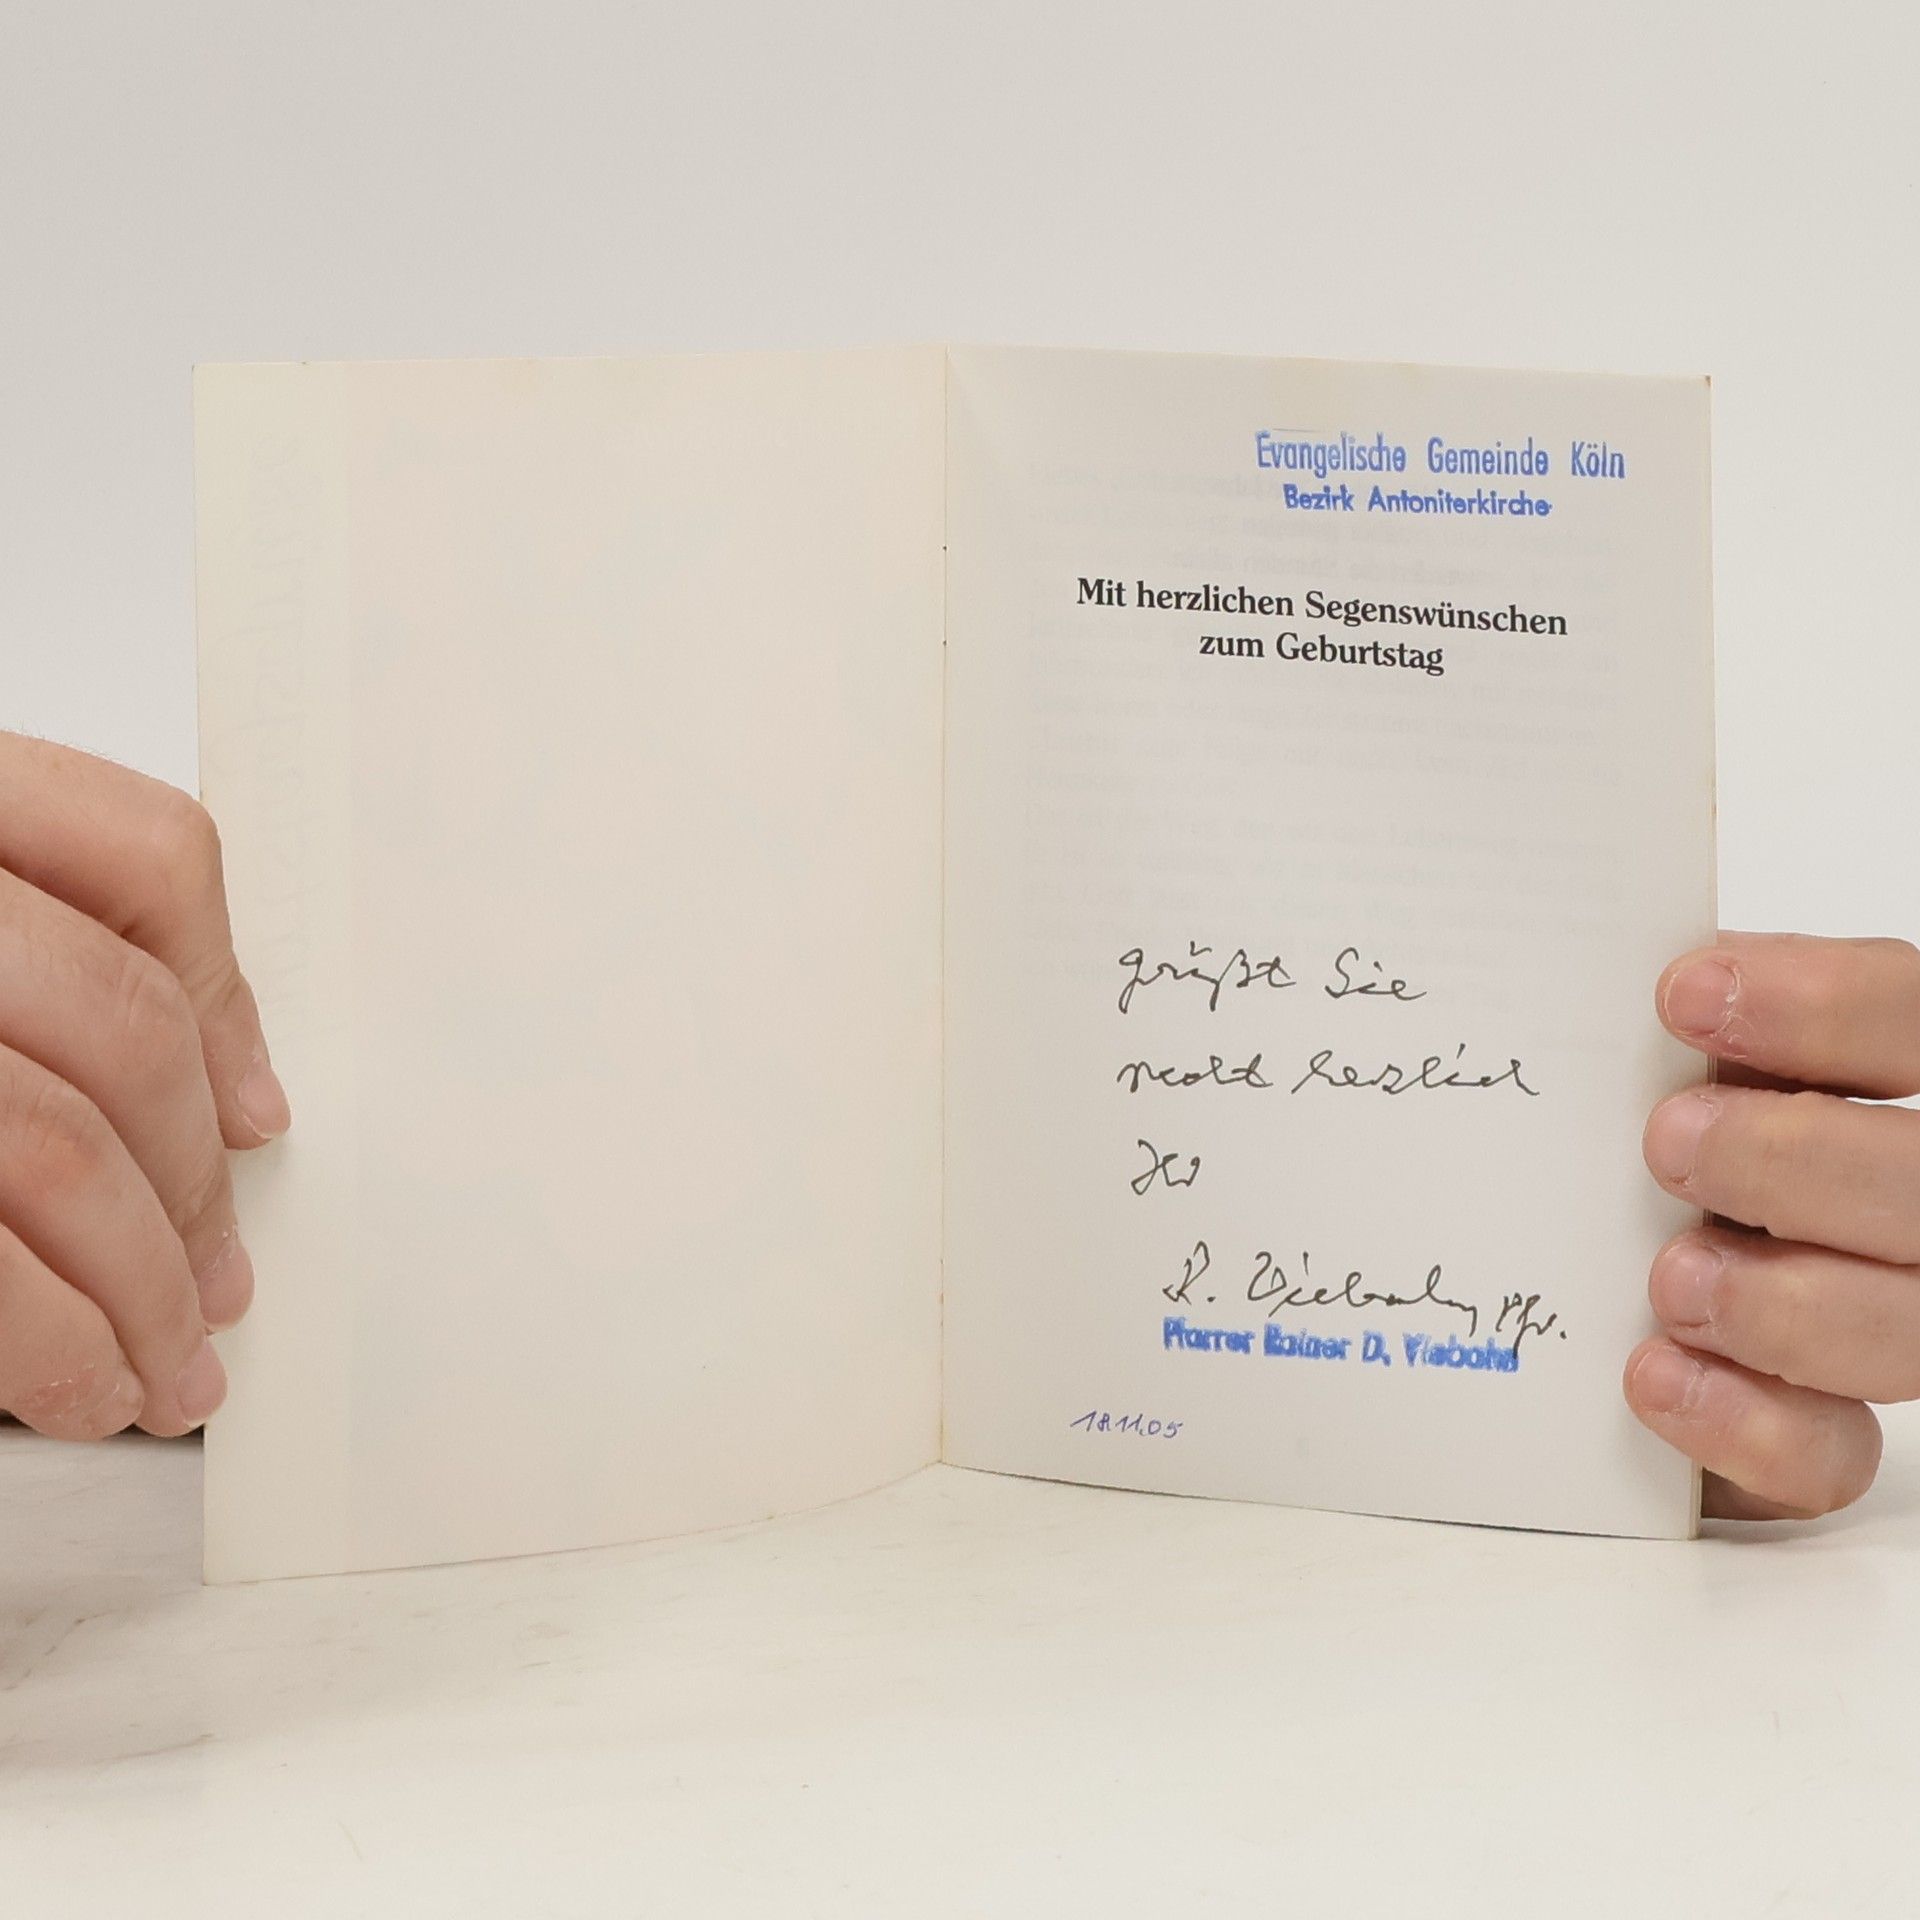 Evangelische Gemeinde Köln
Bezirk Antoniterkirche
Mit herzlichen Segenswünschen
zum Geburtstag
grüßt Sie
recht herzlich
Ihr
R. Viebahn, Pfr.
Pfarrer Rainer D. Viebahn
18.11.05